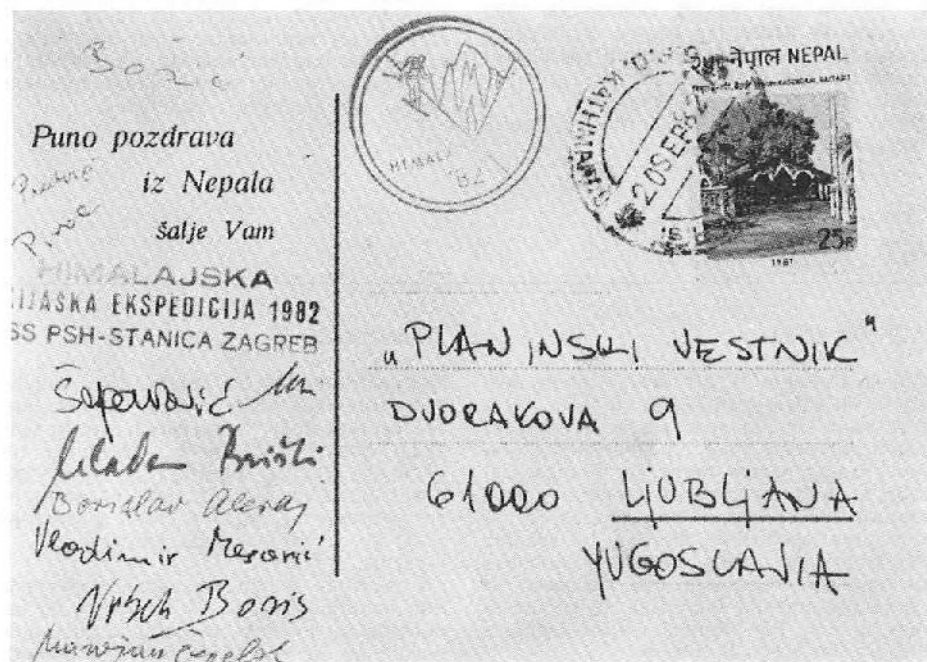 Božić
Puno pozdrava
iz Nepala
šalje Vam
HIMALAJSKA
IJAŠKA EKSPEDICIJA 1982
SS PSH-STANICA ZAGREB
Mladen
Borislav Aleraj
Vladimir Mesarić
Vrbek Boris
Marijan Čepelak
HIMALA
'82
G.P.O. KATHMANDU
20 SEP 82
नेपाल NEPAL
25P
1981
„PLANINSKI VESTNIK"
DVORAKOVA 9
61000 LJUBLJANA
YUGOSLAVIA